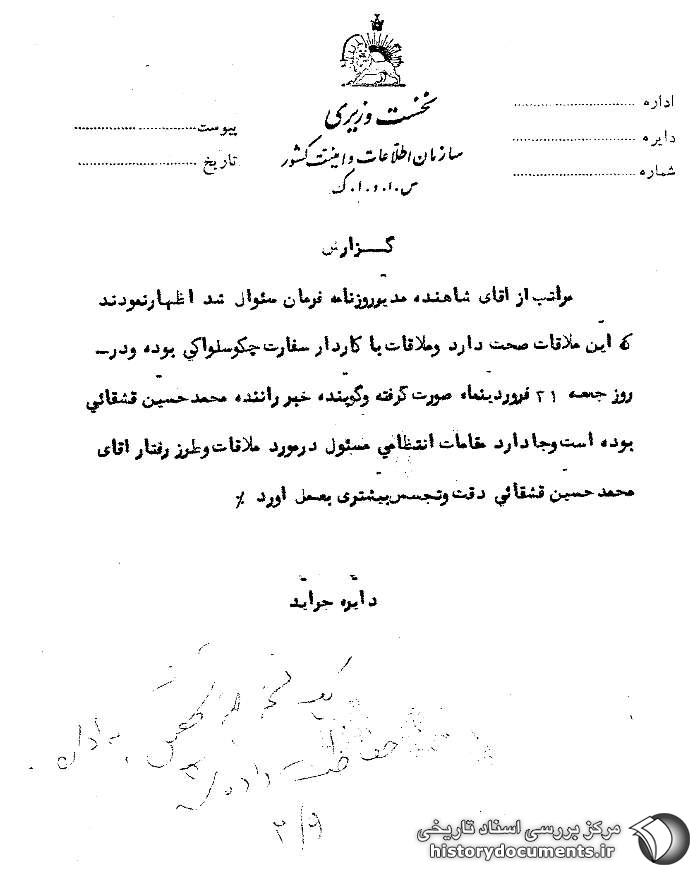 نخست وزیری
سازمان اطلاعات و امنیت کشور
س.ا.و.ا.ک
اداره
دایره
شماره
پیوست
تاریخ
گزارش
مراتب از اقای شاهنده مدیر روزنامه فرمان سئوال شد اظهار نمودند
که این ملاقات صحت دارد و ملاقات با کاردار سفارت چکوسلواکي بوده و در
روز جمعه ۲۱ فروردینماه صورت گرفته و گوینده خبر راننده محمد حسین قشقائي
بوده است و جا دارد مقامات انتظامي مسئول در مورد ملاقات و طرز رفتار اقای
محمد حسین قشقائي دقت و تجسس بیشتری بعمل اورد ٪
دایره جراید
یک
حفاظت داده
۲/۹
مرکز بررسی اسناد تاریخی
historydocuments.ir